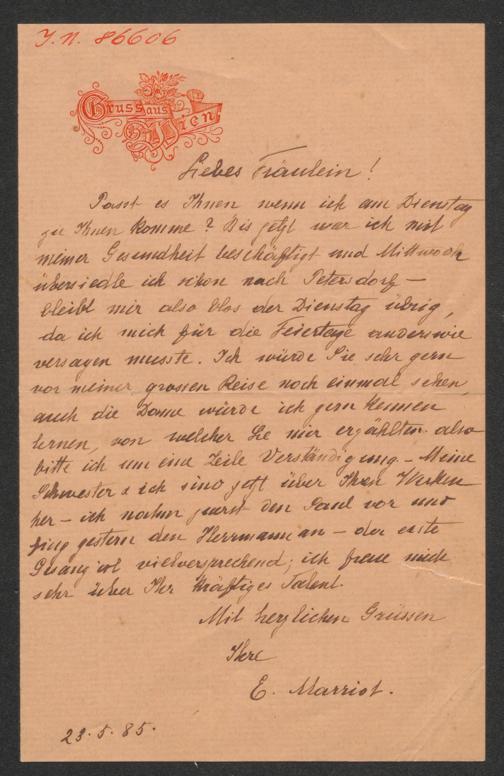 J. N. 86606
Gruss aus Wien
Liebes Fräulein!
Passt es Ihnen wenn ich am Dienstag
zu Ihnen komme? Bis jetzt war ich mit
meiner Gesundheit beschäftigt und Mittwoch
übersiedle ich schon nach Petersdorf –
bleibt mir also blos der Dienstag übrig,
da ich mich für die Feiertage anderswie
versagen musste. Ich würde Sie sehr gern
vor meiner grossen Reise noch einmal sehen,
auch die Dame würde ich gern kennen
lernen, von welcher Sie mir erzählten. also
bitte ich um eine Zeile Verständigung. – Meine
Schwester & ich sind jetzt über Ihren Werken
her – ich nahm zuerst den Saul vor und
fing gestern den Herrmann an – der erste
Gesang ist vielversprechend; ich freue mich
sehr über Ihr kräftiges Talent.
Mit herzlichen Grüssen
Ihre
E. Marriot.
23. 5. 85.